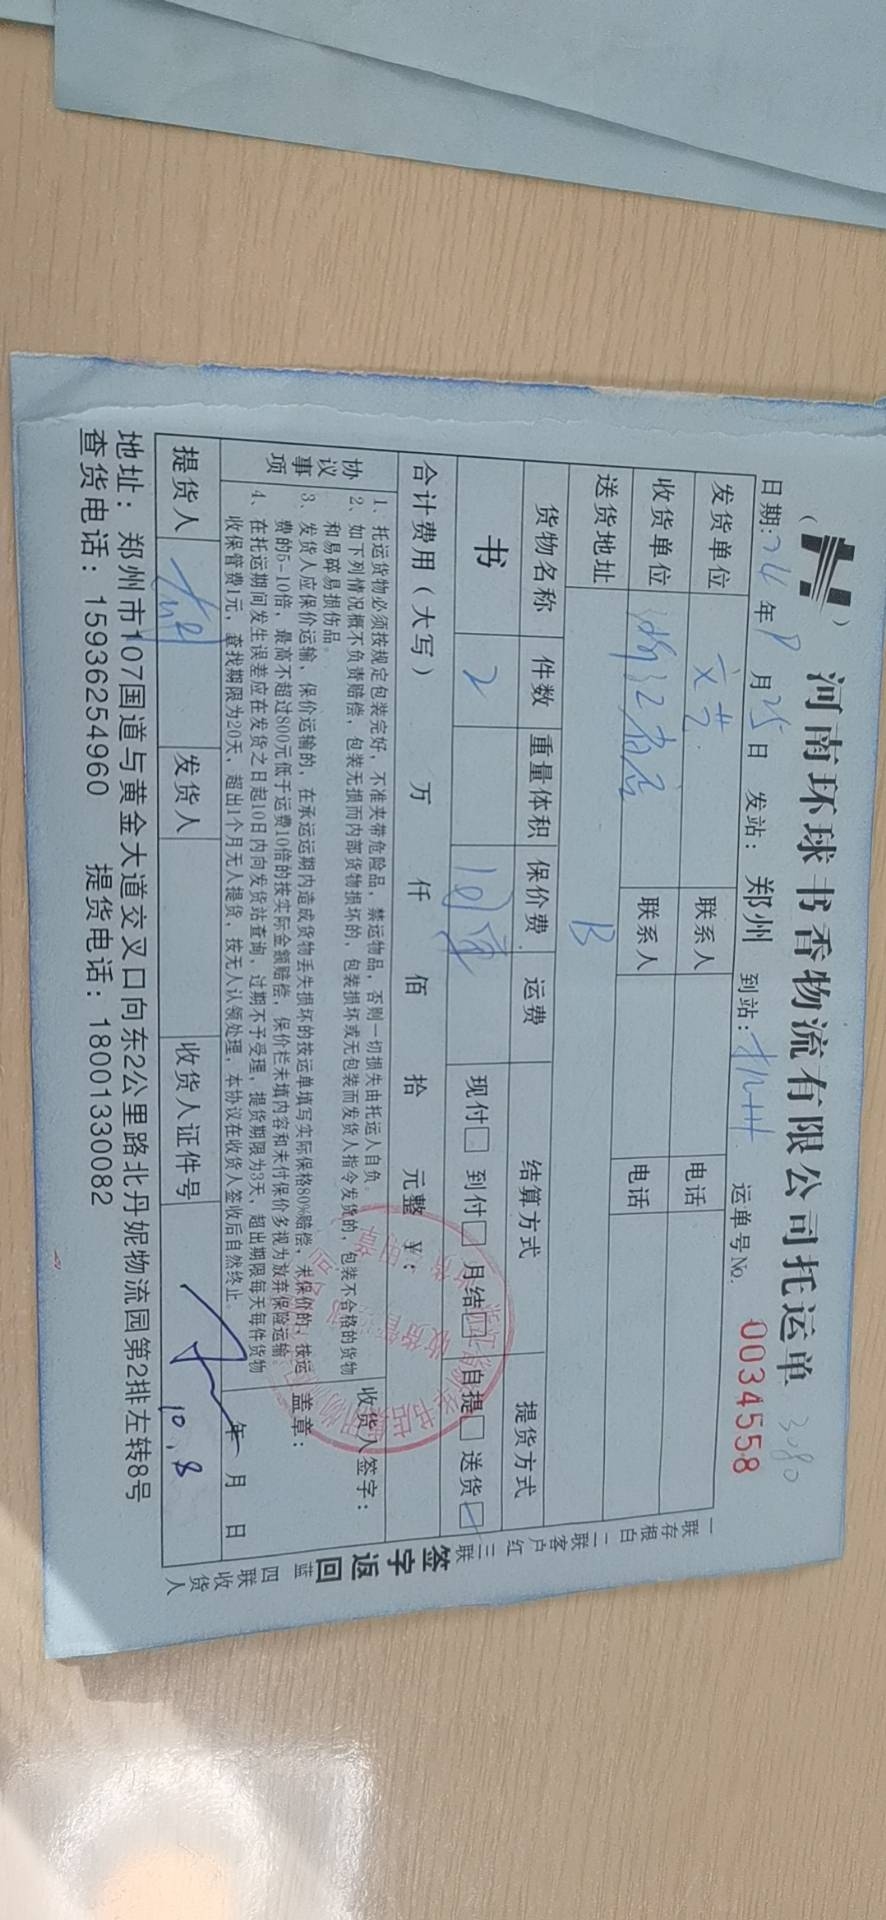 河南环球书香物流有限公司托运单 3080
日期:24年9月25日 发站：郑州 到站:杭州 运单号No. 0034558
发货单位 文艺 联系人 电话
收货单位 浙江书店 联系人 电话
送货地址 B
货物名称 件数 重量体积 保价费 运费 结算方式 提货方式
书 2 回单 现付□ 到付□ 月结□ 自提□ 送货□
合计费用（大写） 万 仟 佰 拾 元整 ￥：
协议事项
1、托运货物必须按规定包装完好，不准夹带危险品，禁运物品，否则一切损失由托运人自负。
2、如下列情况概不负责赔偿，包装无损而内部货物损坏的，包装损坏或无包装而发货人指令发货的，包装不合格的货物
和易碎易损伤品。
3、发货人应保价运输，保价运输的，在承运远期内造成货物丢失损坏的按运单填写实际保格80%赔偿，未保价的，按运
费的5-10倍，最高不超过800元低于运费10倍的按实际金额赔偿，保价栏未填内容和未付保价多视为放弃保险运输。
4、在托运期间发生误差应在发货之日起10日内向发货站查询，过期不予受理，提货期限为3天，超出期限每天每件货物
收保管费1元，查找期限为20天，超出1个月无人提货，按无人认领处理，本协议在收货人签收后自然终止。
收货人签字：
盖章：
年 月 日
提货人 发货人 收货人证件号 10.8
地址：郑州市107国道与黄金大道交叉口向东2公里路北丹妮物流园第2排左转8号
查货电话：15936254960 提货电话：18001330082
一联存根白 二联客户红 三联签字返回蓝 四联收货人
收货专用章